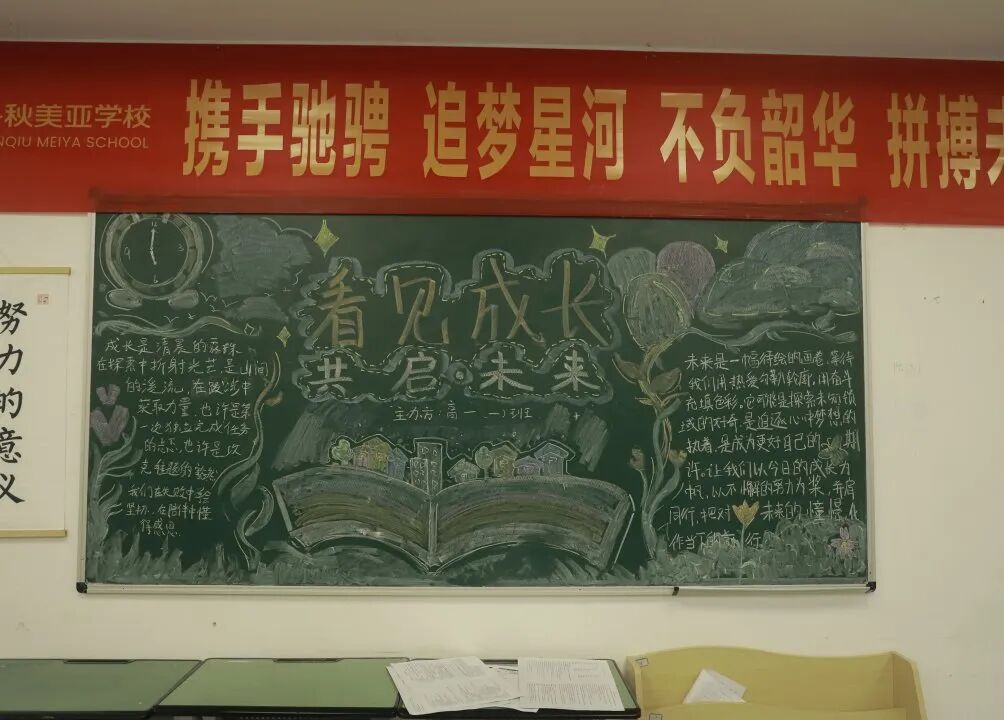 秋美亚学校
NQIU MEIYA SCHOOL
携手驰骋 追梦星河 不负韶华 拼搏
努力的意义
12
3
6
9
看见成长
共启·未来
主办方:高一(一)班
成长是清晨的露珠
在探索中折射光芒是山间
的溪流,在跋涉中
获取力量,也许是第
一次独立完成任务
的忐忑,也许是攻
克难题的
我们在失败中
坚韧,在陪伴中懂
得感恩
未来是一幅待绘的画卷,等待
我们用热爱勾勒轮廓,用奋斗
充填色彩。它可能是探索未知领
域的好奇,是追逐心中梦想的
执着,是成为更好自己的期
许。让我们以今日的成长为
帆,以不懈的努力为桨,并肩
同行,把对未来的憧憬化
作当下的前行